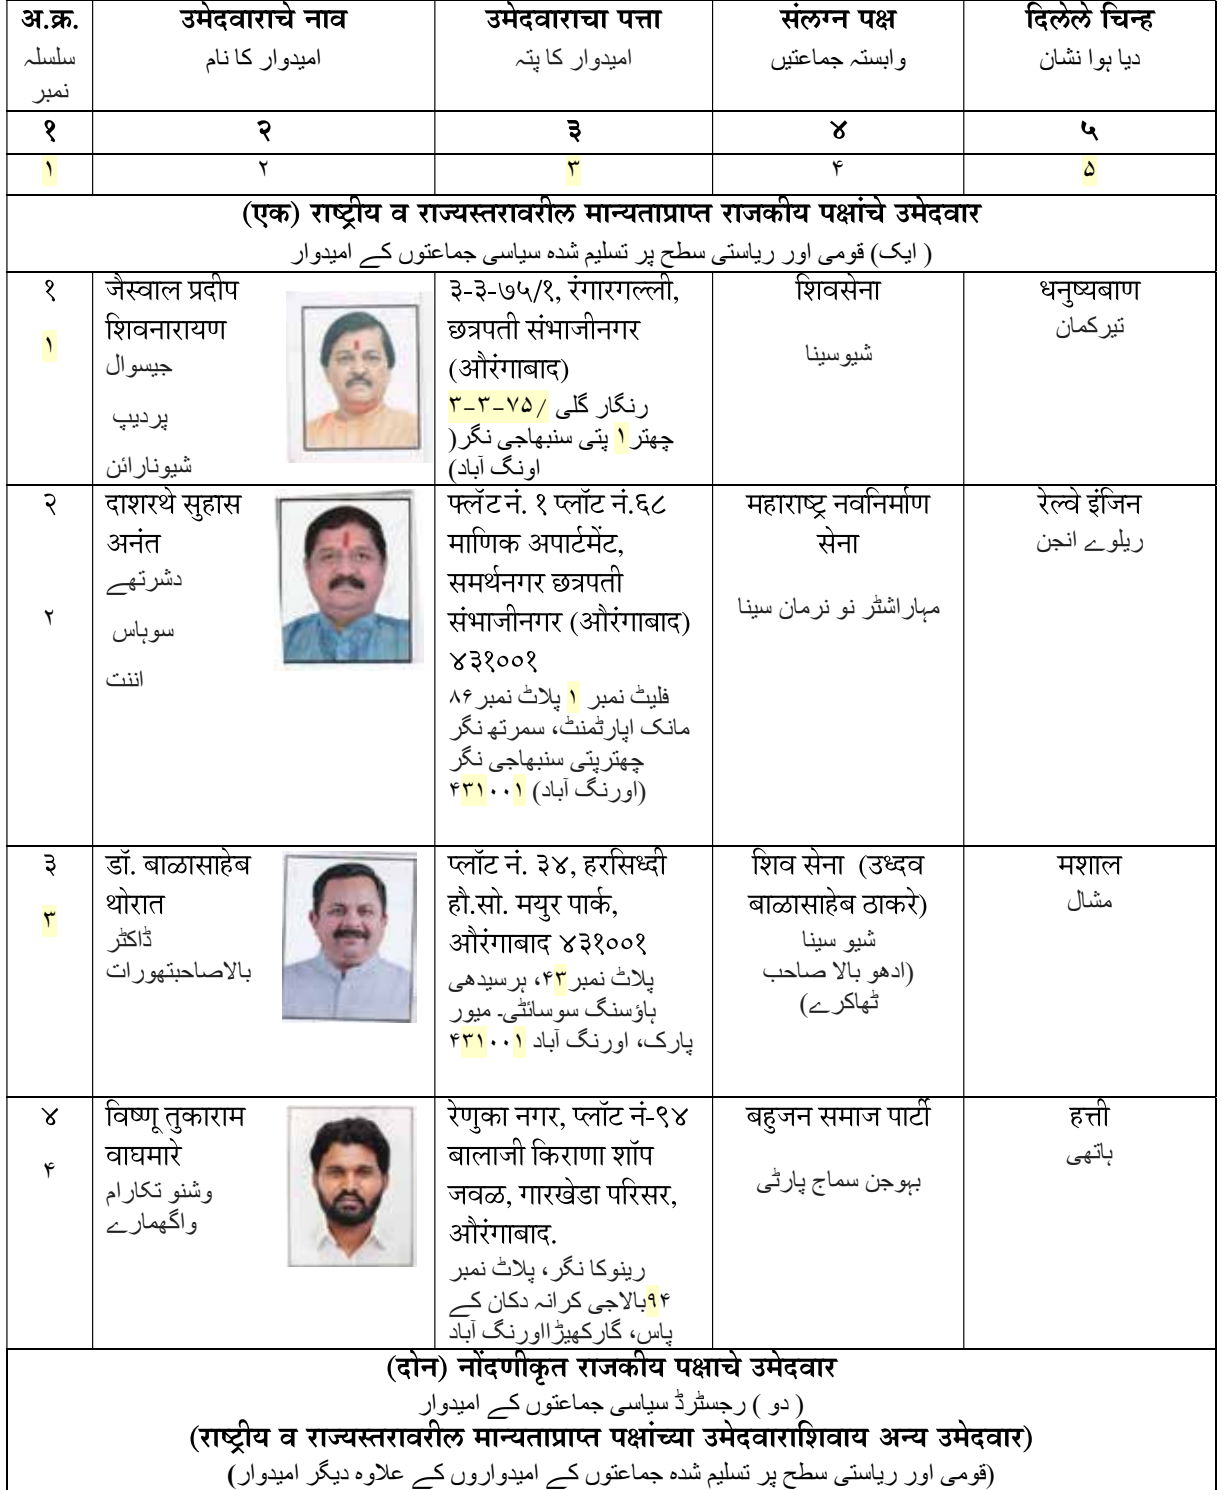 अ.क्र.
سلسلہ
نمبر
उमेदवाराचे नाव
امیدوار کا نام
उमेदवाराचा पत्ता
امیدوار کا پتہ
संलग्न पक्ष
وابستہ جماعتیں
दिलेले चिन्ह
دیا ہوا نشان
१ २ ३ ४ ५
۱ ۲ ۳ ۴ ۵
(एक) राष्ट्रीय व राज्यस्तरावरील मान्यताप्राप्त राजकीय पक्षांचे उमेदवार
( ایک) قومی اور ریاستی سطح پر تسلیم شدہ سیاسی جماعتوں کے امیدوار
१
۱
जैस्वाल प्रदीप
शिवनारायण
جیسوال
پردیپ
شیونارائن
३-३-७५/१, रंगारगल्ली,
छत्रपती संभाजीनगर
(औरंगाबाद)
رنگار گلی /۷۵-۳-۳
چھتر۱ پتی سنبھاجی نگر(
اونگ آباد)
शिवसेना
شیوسینا
धनुष्यबाण
تیرکمان
२
۲
दाशरथे सुहास
अनंत
دشرتھے
سوہاس
اننت
फ्लॅट नं. १ प्लॉट नं.६८
माणिक अपार्टमेंट,
समर्थनगर छत्रपती
संभाजीनगर (औरंगाबाद)
४३१००१
فلیٹ نمبر ۱ پلاٹ نمبر ۸۶
مانک اپارٹمنٹ، سمرتھ نگر
چھترپتی سنبھاجی نگر
(اورنگ آباد) ۴۳۱۰۰۱
महाराष्ट्र नवनिर्माण
सेना
مہاراشٹر نو نرمان سینا
रेल्वे इंजिन
ریلوے انجن
३
۳
डॉ. बाळासाहेब
थोरात
ڈاکٹر
بالاصاحبتھورات
प्लॉट नं. ३४, हरसिध्दी
हौ.सो. मयुर पार्क,
औरंगाबाद ४३१००१
پلاٹ نمبر۴۳، ہرسیدھی
ہاؤسنگ سوسائٹی۔ میور
پارک، اورنگ آباد ۴۳۱۰۰۱
शिव सेना (उध्दव
बाळासाहेब ठाकरे)
شیو سینا
(ادھو بالا صاحب
ٹھاکرے)
मशाल
مشال
४
۴
विष्णू तुकाराम
वाघमारे
وشنو تکارام
واگھمارے
रेणुका नगर, प्लॉट नं-९४
बालाजी किराणा शॉप
जवळ, गारखेडा परिसर,
औरंगाबाद.
رینوکا نگر، پلاٹ نمبر
۹۴بالاجی کرانہ دکان کے
پاس، گارکھیڑااورنگ آباد
बहुजन समाज पार्टी
بہوجن سماج پارٹی
हत्ती
ہاتھی
(दोन) नोंदणीकृत राजकीय पक्षाचे उमेदवार
( دو ) رجسٹرڈ سیاسی جماعتوں کے امیدوار
(राष्ट्रीय व राज्यस्तरावरील मान्यताप्राप्त पक्षांच्या उमेदवाराशिवाय अन्य उमेदवार)
(قومی اور ریاستی سطح پر تسلیم شدہ جماعتوں کے امیدواروں کے علاوہ دیگر امیدوار)